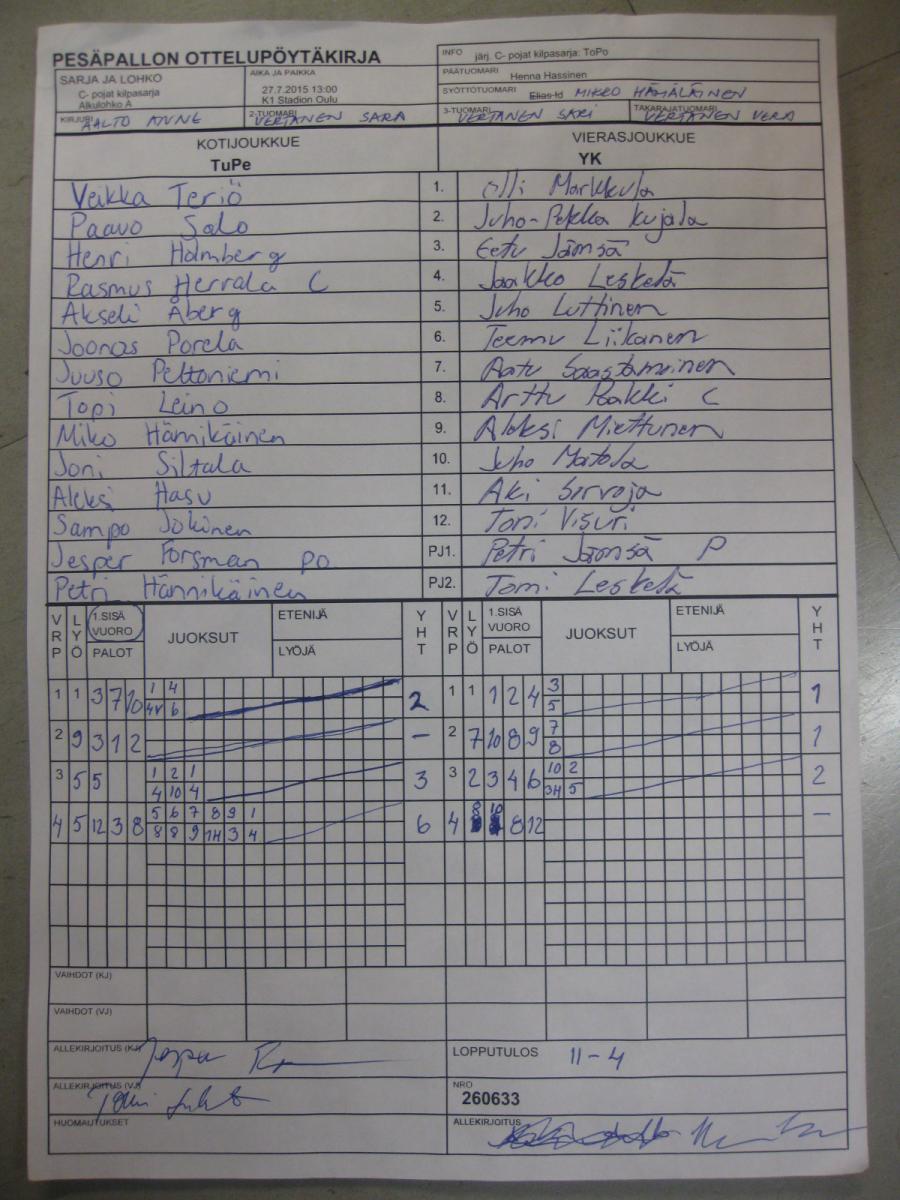 PESÄPALLON OTTELUPÖYTÄKIRJA
INFO järj. C- pojat kilpasarja: ToPo
SARJA JA LOHKO
C- pojat kilpasarja
Alkulohko A
AIKA JA PAIKKA
27.7.2015 13:00
K1 Stadion Oulu
PÄÄTUOMARI Henna Hassinen
SYÖTTÖTUOMARI Elias Id MIKKO HÄMÄLÄINEN
KIRJURI AALTO ANNE
2-TUOMARI VERTANEN SARA
3-TUOMARI VERTANEN SARI
TAKARAJATUOMARI VERTANEN VERA
KOTIJOUKKUE
TuPe
VIERASJOUKKUE
YK
Veikka Teriö 1. Olli Markkula
Paavo Salo 2. Juho-Pekka Kujala
Henri Holmberg 3. Eetu Jämsä
Rasmus Herrala C 4. Jaakko Leskelä
Akseli Åberg 5. Juho Luttinen
Joonas Porela 6. Teemu Liikanen
Juuso Peltoniemi 7. Aatu Saastamoinen
Topi Leino 8. Arttu Paakki C
Miko Hännikäinen 9. Aleksi Miettunen
Joni Siltala 10. Juho Matola
Aleksi Hasu 11. Aki Sirvoja
Sampo Jokinen 12. Toni Visuri
Jesper Forsman PO PJ1. Petri Jämsä P
Petri Hännikäinen PJ2. Tomi Leskelä
VRP LYÖ 1.SISÄ VUORO PALOT JUOKSUT ETENIJÄ LYÖJÄ YHT VRP LYÖ 1.SISÄ VUORO PALOT JUOKSUT ETENIJÄ LYÖJÄ YHT
1 1 3 7 10 1 4 2 1 1 1 2 4 3 1
4V 6 5
2 9 3 1 2 – 2 7 10 8 9 7 1
8
3 5 5 1 2 1 3 3 2 3 4 6 10 2 2
4 10 4 3H 5
4 5 12 3 8 5 6 7 8 9 1 6 4 8 10 8 12 –
8 8 9 1H 3 4
VAIHDOT (KJ)
VAIHDOT (VJ)
ALLEKIRJOITUS (KJ)
LOPPUTULOS 11-4
ALLEKIRJOITUS (VJ)
NRO
260633
HUOMAUTUKSET
ALLEKIRJOITUS